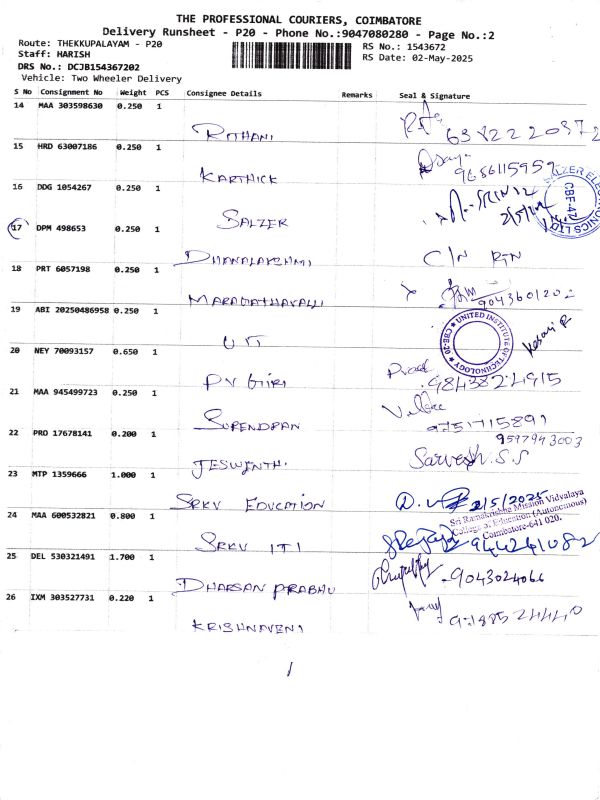 THE PROFESSIONAL COURIERS, COIMBATORE
Delivery Runsheet - P20 - Phone No.:9047080280 - Page No.:2
Route: THEKKUPALAYAM - P20
RS No.: 1543672
Staff: HARISH
RS Date: 02-May-2025
DRS No.: DCJB154367202
Vehicle: Two Wheeler Delivery
S No Consignment No Weight PCS Consignee Details Remarks Seal & Signature
14 MAA 303598630 0.250 1
ROTHANI
15 HRD 63007186 0.250 1
KARTHICK
9656115959
16 DDG 1054267 0.250 1
SALZER
SALZER ELECTRONICS LTD
17 DPM 498653 0.250 1
DHANALAKSHMI
C/N RTN
18 PRT 6057198 0.250 1
MARAGATHAVALLI
9043601202
19 ABI 20250486958 0.250 1
UIT
UNITED INSTITUTE OF TECHNOLOGY
CBE-20
20 NEY 70093157 0.650 1
PV Giri
9843824915
21 MAA 945499723 0.250 1
SURENDRAN
9751715891
22 PRO 17678141 0.200 1
9597943003
JESWINTH.
Sarvesh.S.S
23 MTP 1359666 1.000 1
SRKV EDUCATION
2/5/2025
Sri Ramakrishna Mission Vidyalaya
College of Education (Autonomous)
Coimbatore-641 020.
24 MAA 600532821 0.800 1
SRKV ITI
25 DEL 530321491 1.700 1
DHARSAN PRABHU
9043024066
26 IXM 303527731 0.220 1
KRISHNAVENI